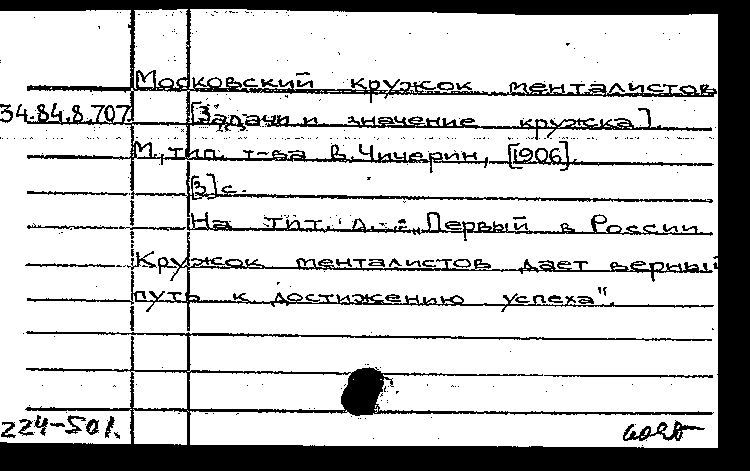 Московский кружок менталистов
34.84.8.707 [Задачи и значение кружка].
М., тип. т-ва В. Чичерин, [1906].
[3] с.
На тит. л.: „Первый в России
Кружок менталистов дает верный
путь к достижению успеха".
224-501.